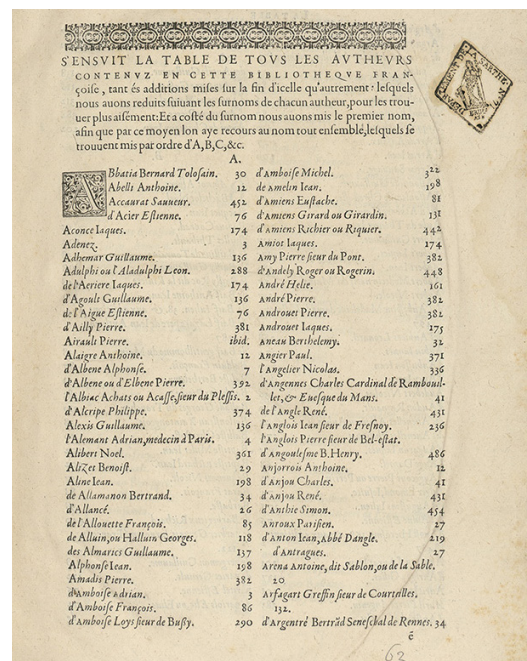 S'ENSVIT LA TABLE DE TOVS LES AVTHEVRS
CONTENVZ EN CETTE BIBLIOTHEQVE FRAN-
çoise, tant és additions mises sur la fin d'icelle qu'autrement: lesquels
nous auons reduits suiuant les surnoms de chacun autheur, pour les trou-
uer plus aisément: Et a costé du surnom nous auons mis le premier nom,
afin que par ce moyen lon aye recours au nom tout ensemble, lesquels se
trouuent mis par ordre d'A, B, C, &c.
A.
ABbatia Bernard Tolosain. 30
Abelli Anthoine. 12
Accaurat Sauueur. 452
d'Acier Estienne. 76
Aconce Iaques. 174
Adenez. 3
Adhemar Guillaume. 136
Adulphi ou l'Aladulphi Leon. 288
de l'Aeriere Iaques. 174
d'Agoult Guillaume. 136
de l'Aigue Estienne. 76
d'Ailly Pierre. 381
Airault Pierre. ibid.
Alaigre Anthoine. 12
d'Albene Alphonse. 7
d'Albene ou d'Elbene Pierre. 392
l'Albiac Achats ou Acasse, sieur du Plessis. 2
d'Alcripe Philippe. 374
Alexis Guillaume. 136
l'Alemant Adrian, medecin à Paris. 4
Alibert Noel. 361
Alizet Benoist. 29
Aline Iean. 198
de Allamanon Bertrand. 34
d'Allancé. 26
de l'Allouette François. 85
de Alluin, ou Halluin Georges. 118
des Almarics Guillaume. 137
Alphonse Iean. 198
Amadis Pierre. 382
d'Amboise Adrian. 3
d'Amboise François. 86
d'Amboise Loys sieur de Bussy. 290
d'Amboise Michel. 322
de Amelin Iean. 198
d'Amiens Eustache. 81
d'Amiens Girard ou Girardin. 131
d'Amiens Richier ou Riquier. 442
Amiot Iaques. 174
Amy Pierre sieur du Pont. 382
d'Andely Roger ou Rogerin. 448
André Helie. 161
André Pierre. 382
Androuet Pierre. 382
Androuet Iaques. 175
Aneau Berthelemy. 32
Angier Paul. 371
l'Angelier Nicolas. 336
d'Angennes Charles Cardinal de Rambouil-
let, & Euesque du Mans. 41
de l'Angle René. 431
l'Anglois Iean sieur de Fresnoy. 236
l'Anglois Pierre sieur de Bel-estat.
d'Angoulesme B. Henry. 486
Anjorrois Anthoine. 12
d'Anjou Charles. 41
d'Anjou René. 431
d'Anthie Simon. 454
Anroux Parisien. 27
d'Anton Iean, Abbé Dangle. 219
d'Antragues. 27
Arena Antoine, dit Sablon, ou de la Sable.
20
Arfagart Greffin sieur de Courteilles.
132.
d'Argentré Bertrãd Seneschal de Rennes. 34
é
62